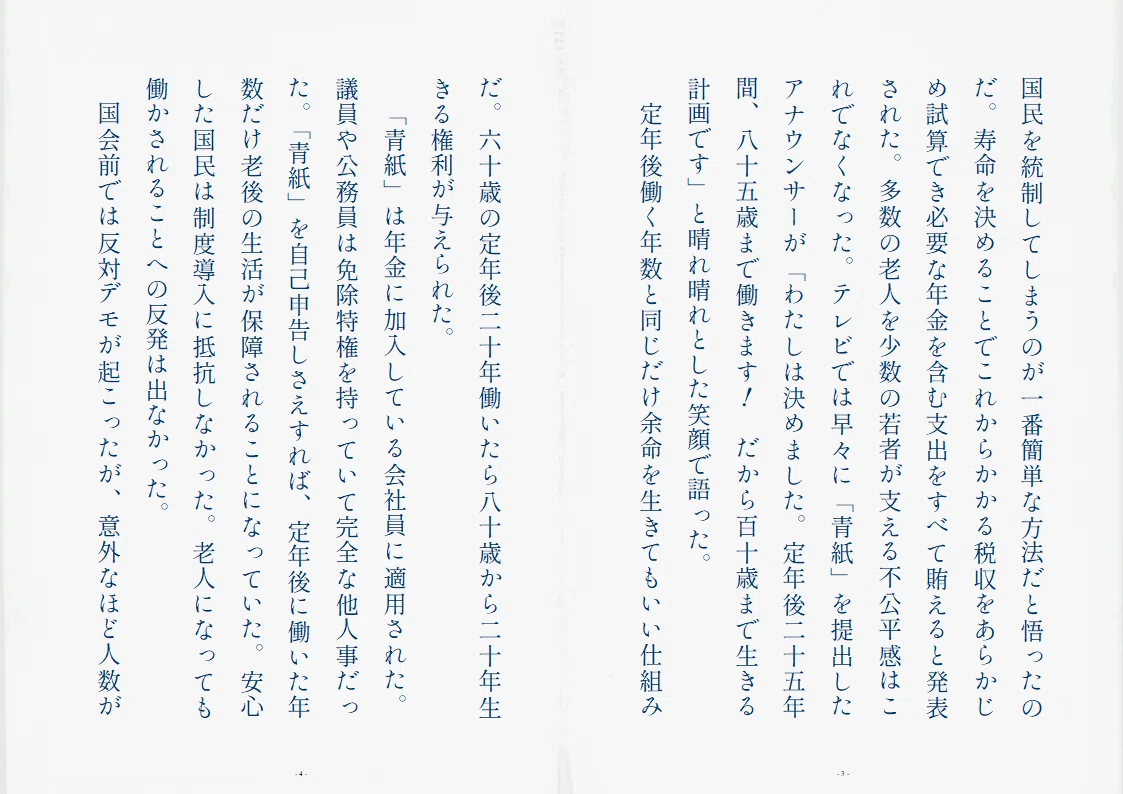 国民を統制してしまうのが一番簡単な方法だと悟ったの
だ。寿命を決めることでこれからかかる税収をあらかじ
め試算でき必要な年金を含む支出をすべて賄えると発表
された。多数の老人を少数の若者が支える不公平感はこ
れでなくなった。テレビでは早々に「青紙」を提出した
アナウンサーが「わたしは決めました。定年後二十五年
間、八十五歳まで働きます！　だから百十歳まで生きる
計画です」と晴れ晴れとした笑顔で語った。
　定年後働く年数と同じだけ余命を生きてもいい仕組み
- 3 -
だ。六十歳の定年後二十年働いたら八十歳から二十年生
きる権利が与えられた。
　「青紙」は年金に加入している会社員に適用された。
議員や公務員は免除特権を持っていて完全な他人事だっ
た。「青紙」を自己申告しさえすれば、定年後に働いた年
数だけ老後の生活が保障されることになっていた。安心
した国民は制度導入に抵抗しなかった。老人になっても
働かされることへの反発は出なかった。
　国会前では反対デモが起こったが、意外なほど人数が
- 4 -